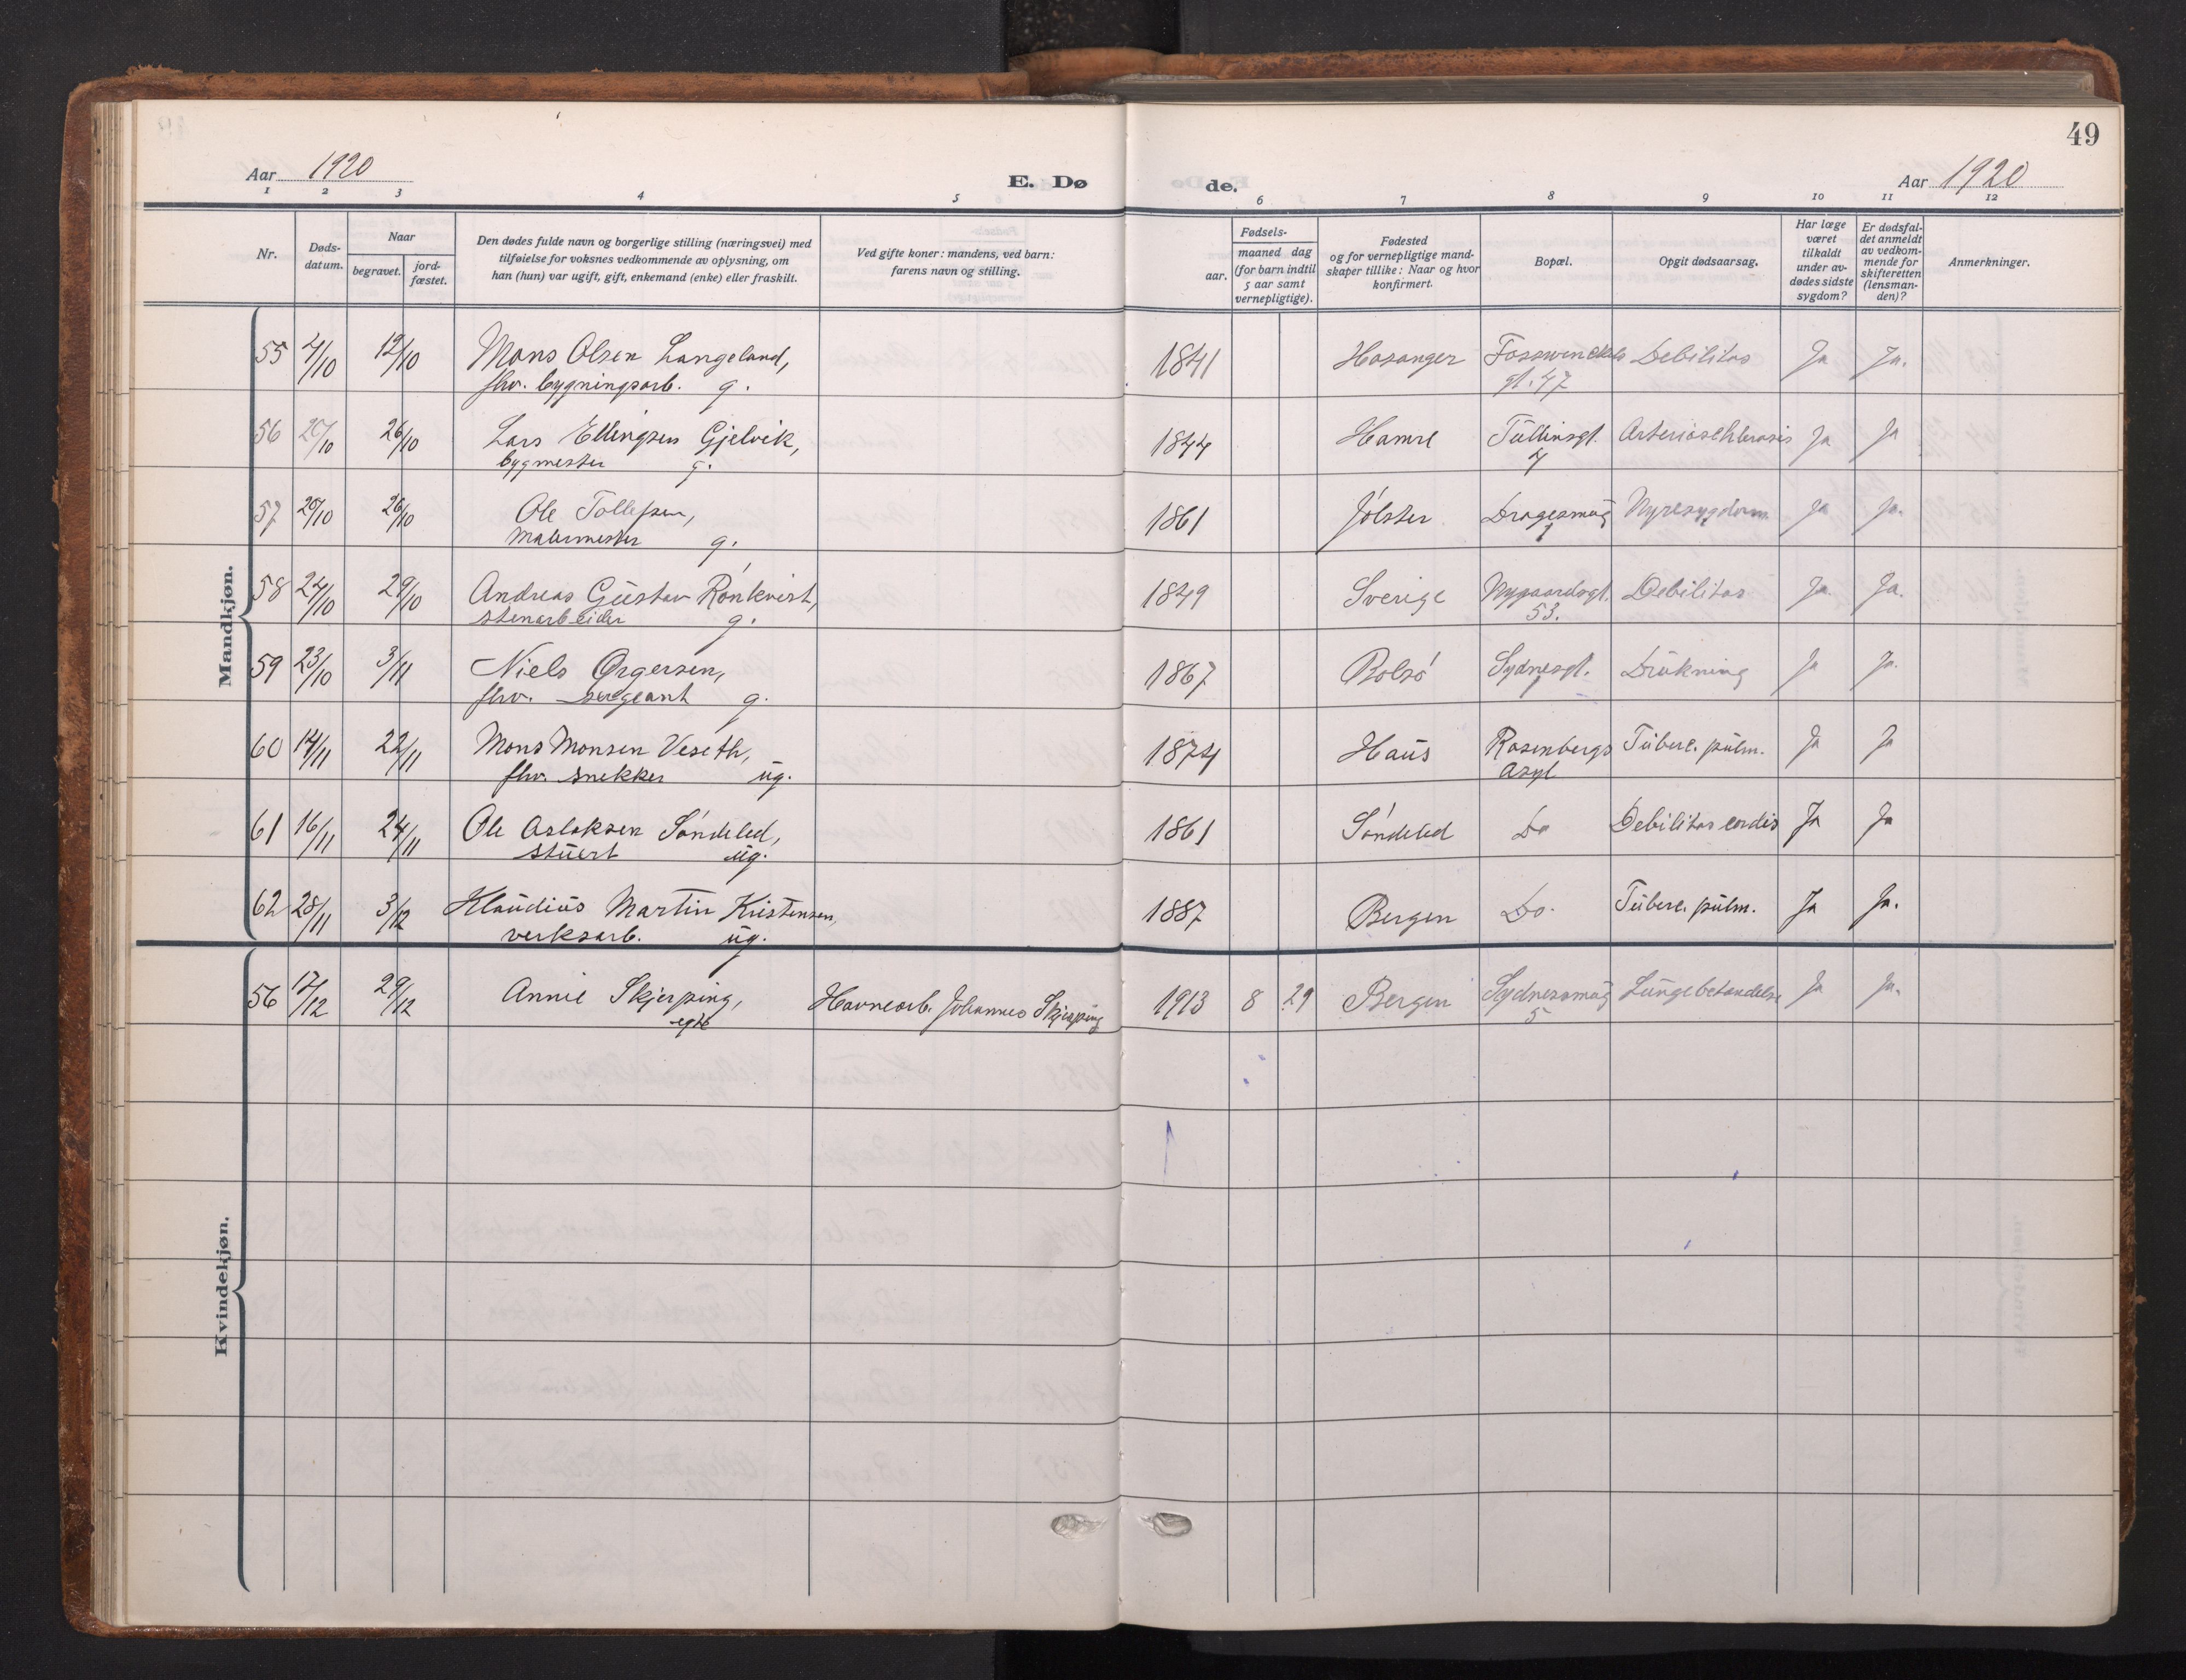 49
Aar 1920
E. Døde.
Aar 1920
1 2 3 4 5 6 7 8 9 10 11 12
Nr.
Døds-datum.
Naar
begravet.
jord-fæstet.
Den dødes fulde navn og borgerlige stilling (næringsvei) med
tilføielse for voksnes vedkommende av oplysning, om
han (hun) var ugift, gift, enkemand (enke) eller fraskilt.
Ved gifte koner: mandens, ved barn:
farens navn og stilling.
Fødsels-
aar.
maaned dag
(for barn indtil
5 aar samt
vernepligtige).
Fødested
og for vernepligtige mand-
skaper tillike: Naar og hvor
konfirmert.
Bopæl.
Opgit dødsaarsag.
Har læge
været
tilkaldt
under av-
dødes sidste
sygdom?
Er dødsfal-
det anmeldt
av vedkom-
mende for
skifteretten
(lensman-
den)?
Anmerkninger.
Mandkjøn.
55 4/10 12/10 Mons Olsen Langeland, 1841 Hosanger Fosswinckels Debilitas Ja Ja.
fhv. bygningsarb. g. gt. 47
56 20/10 26/10 Lars Ellingsen Gjelvik, 1844 Hamre Tüllinsgt. Arteriosklerosis Ja Ja
bygmester g. 7
57 20/10 26/10 Ole Tollefsen, 1861 Jølster Dragesmug Nyresygdom Ja Ja.
Malermester g. 1
58 24/10 29/10 Andreas Gustav Rönkvist, 1849 Sverige Nygaardsgt. Debilitas Ja. Ja.
stenarbeider g. 53.
59 23/10 3/11 Niels Ørgersen, 1867 Bolsø Sydnesgt. Drukning Ja Ja.
fhv. sergeant g. 1
60 14/11 22/11 Mons Monsen Veseth, 1874 Haus Rosenbergs Tuberc. pulm. Ja Ja
fhv. snekker ug. Asyl
61 16/11 24/11 Ole Aslaksen Søndeled, 1861 Søndeled Do Debilitas cordis Ja Ja
stuert ug.
62 28/11 3/12 Klaudius Martin Kristensen, 1887 Bergen Do. Tuberc. pulm. Ja Ja.
verksarb. ug.
Kvindekjøn.
56 17/12 29/12 Annie Skjerping, Havnearb. Johannes Skjerping 1913 8 29 Bergen Sydnessmug Lungebetændelse Ja Ja.
egte 5